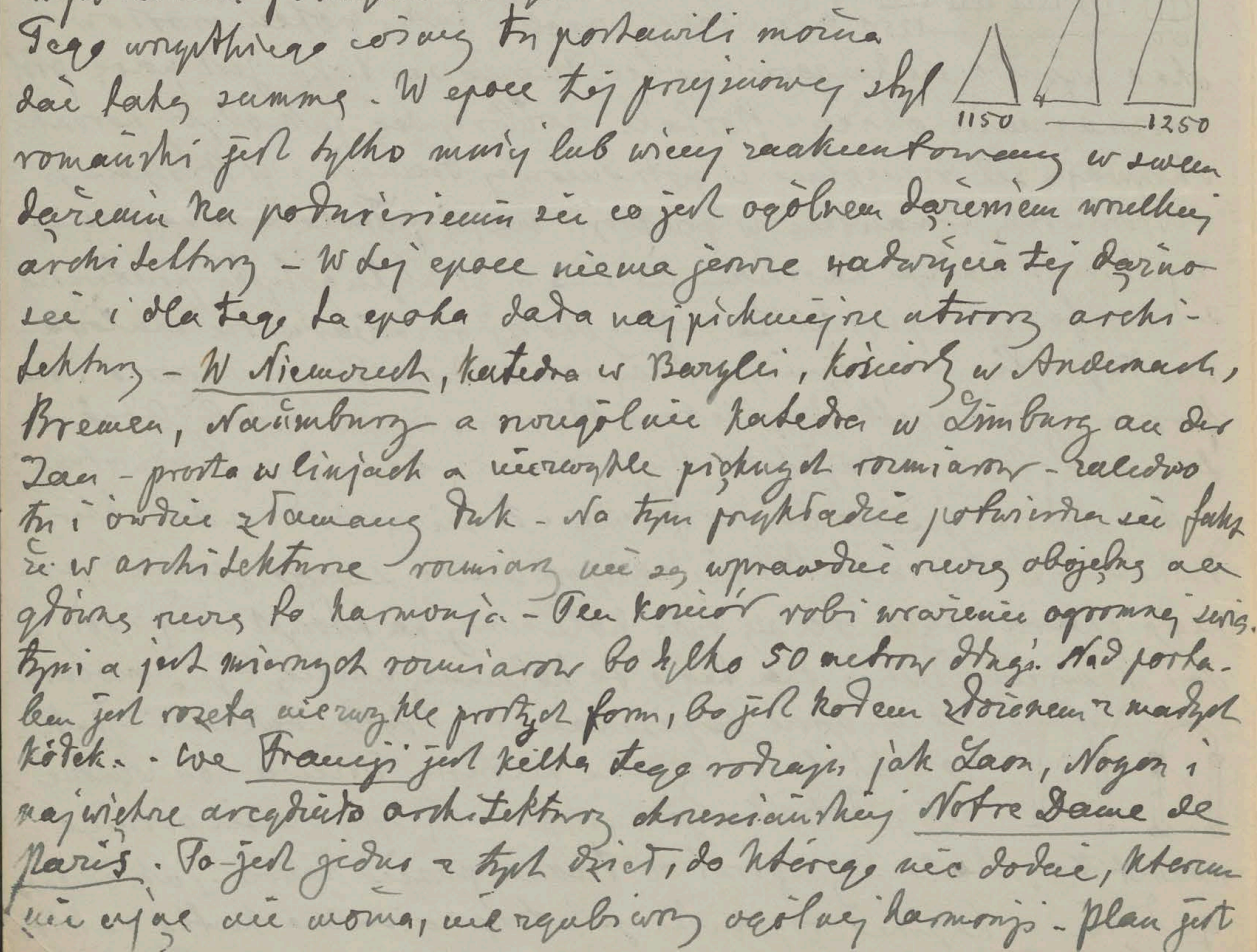 Tego wszystkiego cośmy tu postawili można
dać taką summę. W epoce tej przejściowej styl
1150 — 1250
romański jest tylko mniej lub więcej zaakcentowany w swem
dążeniu ku podniesieniu się co jest ogólnem dążeniem wszelkiej
architektury – W tej epoce niema jeszcze nadużycia tej dążno
ści i dla tego ta epoka dała najpiękniejsze utwory archi-
tektury – W Niemczech, katedra w Bazylei, kościoły w Andernach,
Bremen, Naümburg a szczególnie katedra w Limburg an der
Lan – prosta w linjach a niezwykle pięknych rozmiarów – zaledwo
tu i ówdzie złamany łuk – Na tym przykładzie potwierdza się fakt
że w architekturze rozmiary nie są wprawdzie rzeczą obojętną ale
główną rzeczą to harmonja – Ten kościół robi wrażenie ogromnej świą-
tyni a jest miernych rozmiarów bo tylko 50 metrów długi. Nad porta-
lem jest rozeta niezwykle prostych form, bo jest kołem złożonem z małych
kółek. We Francji jest kilka tego rodzaju jak Laon, Noyon i
największe arcydzieło architektury chrześcijańskiej Notre Dame de
Paris. To jest jedno z tych dzieł, do którego nic dodać, któremu
nic ująć nie można, nie zgubiwszy ogólnej harmonji – Plan jest